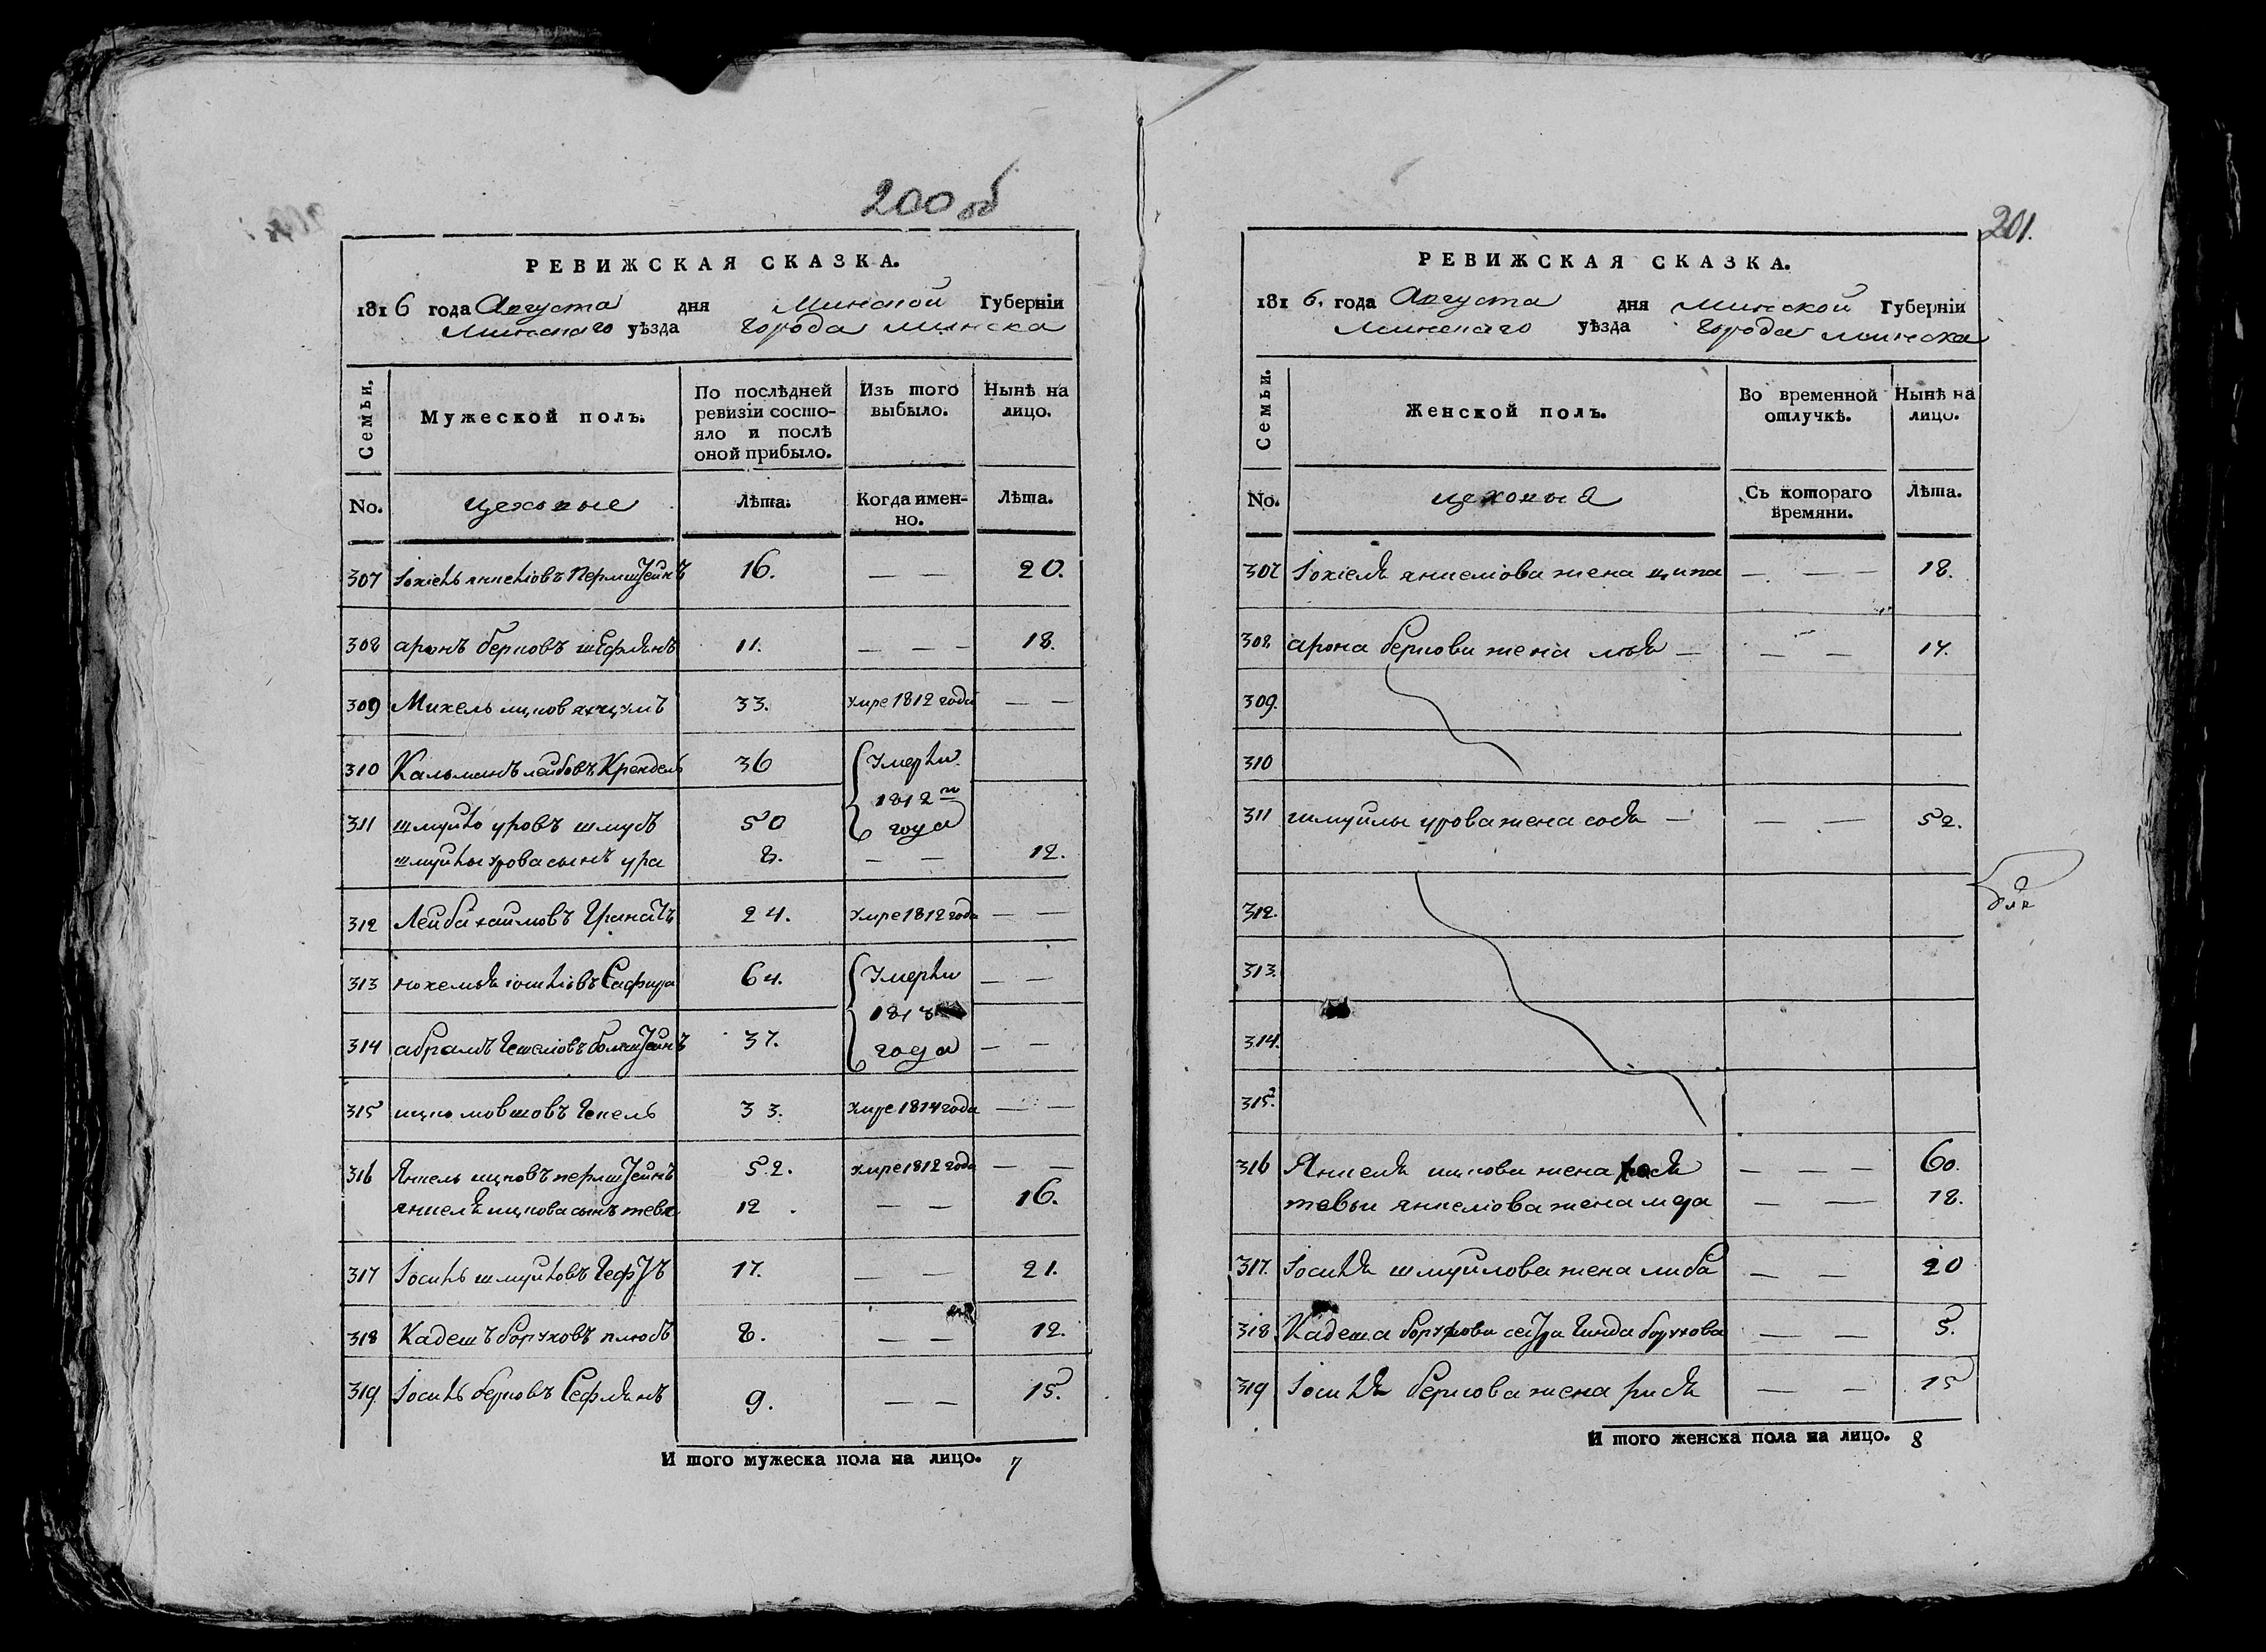 200 об
РЕВИЖСКАЯ СКАЗКА.
1816 года Августа дня Минской Губерніи
Минскаго уѣзда города минска
Семьи.
Мужеской полъ.
По послѣдней ревизіи состо-
яло и послѣ
оной прибыло.
Изъ того выбыло.
Нынѣ на лицо.
No.
цеховые
Лѣта.
Когда имен-
но.
Лѣта.
307 Іохіель янкеліовъ Перлштейнъ 16. — — 20.
308 аронъ берковъ 11. — — — 18.
309 Михель ицков 33. умре 1812 года — —
310 Кальманъ лейбовъ Крендель 36 Умерли
1812 го
года
311 шмуйло уровъ 50
шмуйлы урова сынъ ура 8. — — 12.
312 Лейба хаимовъ 24. умре 1812 года — —
313 Сафира 64. Умерли — —
181
года
314 абрамъ 37. — —
315 ицко мовшовъ 33. умре 1814 года — —
316 Янкель ицковъ перлштейнъ 52. умре 1812 года — —
янкеля ицкова сынъ тевя 12. — — 16.
317 Іосиль шмуйловъ 17. — — 21.
318 Кадешъ боруховъ 8. — — 12.
319 Іосиль берковъ 9. — — 15.
И того мужеска пола на лицо. 7
201.
РЕВИЖСКАЯ СКАЗКА.
1816. года Августа дня Минской Губерніи
Минскаго уѣзда города минска
Семьи.
Женской полъ.
Во временной отлучкѣ.
Нынѣ на лицо.
No.
цеховыя
Съ котораго времяни.
Лѣта.
307 Іохіеля янкеліова жена ципа — — — 18.
308 арона беркова жена — — —
309.
310
311 шмуйлы урова жена — — — 52.
312.
313.
314.
315.
316 Янкеля ицкова жена — — — 60.
тевьи янкеліова жена — — 18.
317. Іосиля шмуйлова жена либа — — 20
318 Кадеша борухова сестра гинда борухова — — 5.
319 Іосиля беркова жена — — 15
И того женска пола на лицо. 8